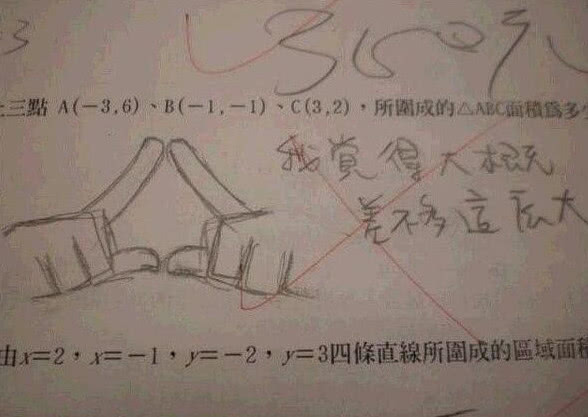 3
360元
上三點 A(−3,6)、B(−1,−1)、C(3,2),所圍成的△ABC面積為多
我覺得大概
差不多這麼大
由x=2,x=−1,y=−2,y=3四條直線所圍成的區域面積